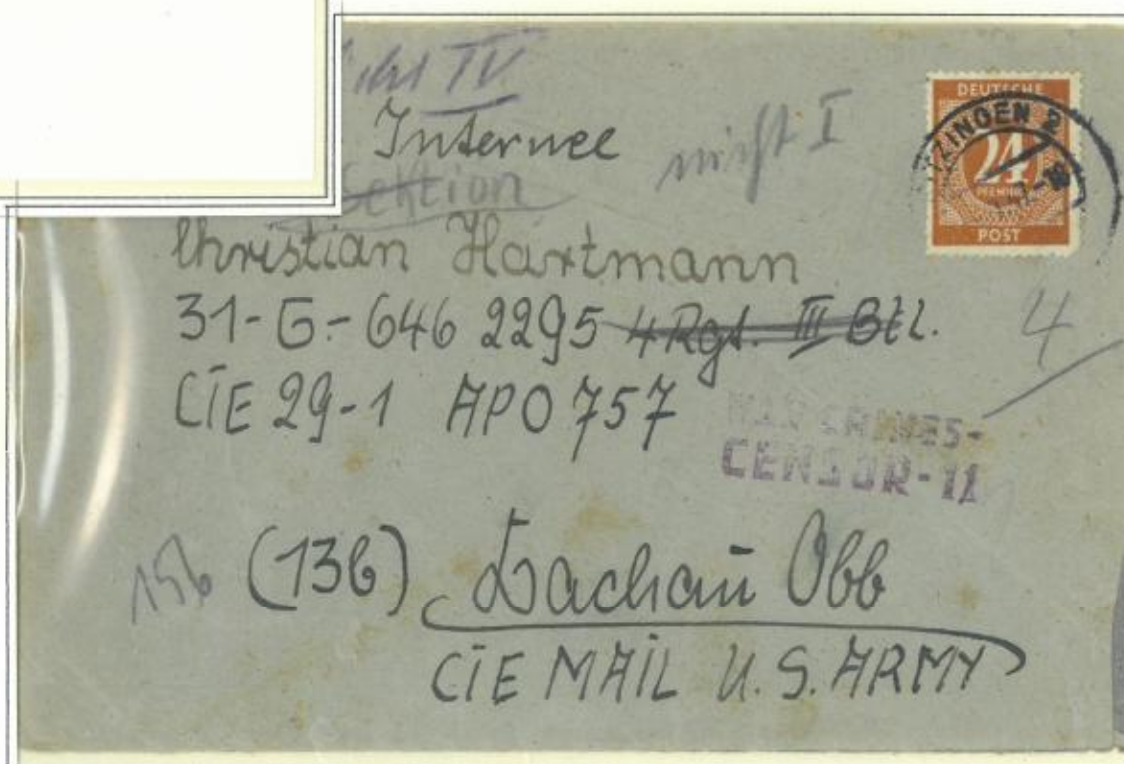 IV
Internee
nicht I
Sektion
Christian Hartmann
31-G-646 2295 4 Rgt. III Btl.
CIE 29-1 APO 757
4
WAR CRIMES-
CENSOR-11
156 (13b) Dachau Obb
CIE MAIL U.S. ARMY
DEUTSCHE
24
PFENNIG
POST
TZINGEN 2